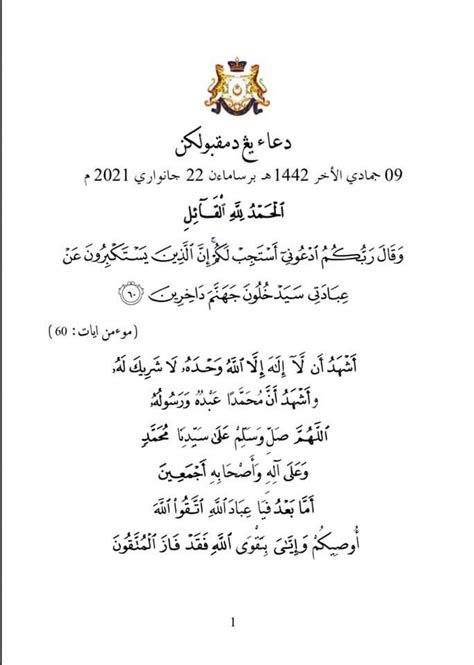 دعاء يڠ دمقبولكن
09 جمادي الأخر 1442هـ برسامأن 22 جانواري 2021 م
الْحَمْدُ لِلَّهِ الْقَآئِلِ
وَقَالَ رَبُّكُمُ ٱدْعُونِىٓ أَسْتَجِبْ لَكُمْ ۚ إِنَّ ٱلَّذِينَ يَسْتَكْبِرُونَ عَنْ
عِبَادَتِى سَيَدْخُلُونَ جَهَنَّمَ دَاخِرِينَ ٦٠
(موءمن ايات: 60)
أَشْهَدُ أَن لَّآ إِلَٰهَ إِلَّا ٱللَّهُ وَحْدَهُۥ لَا شَرِيكَ لَهُۥ
وأَشْهَدُ أَنَّ مُحَمَّدًا عَبْدُهُۥ وَرَسُولُهُۥ
اللَّهُمَّ صَلِّ وَسَلِّمْ عَلَىٰ سَيِّدِنَا مُحَمَّدٍ
وَعَلَىٰ آلِهِ وَأَصْحَابِهِ أَجْمَعِينَ
أَمَّا بَعْدُ فَيَا عِبَادَ ٱللَّهِ ٱتَّقُوا۟ ٱللَّهَ
أُوصِيكُمْ وَإِيَّاىَ بِتَقْوَى ٱللَّهِ فَقَدْ فَازَ الْمُتَّقُونَ
1